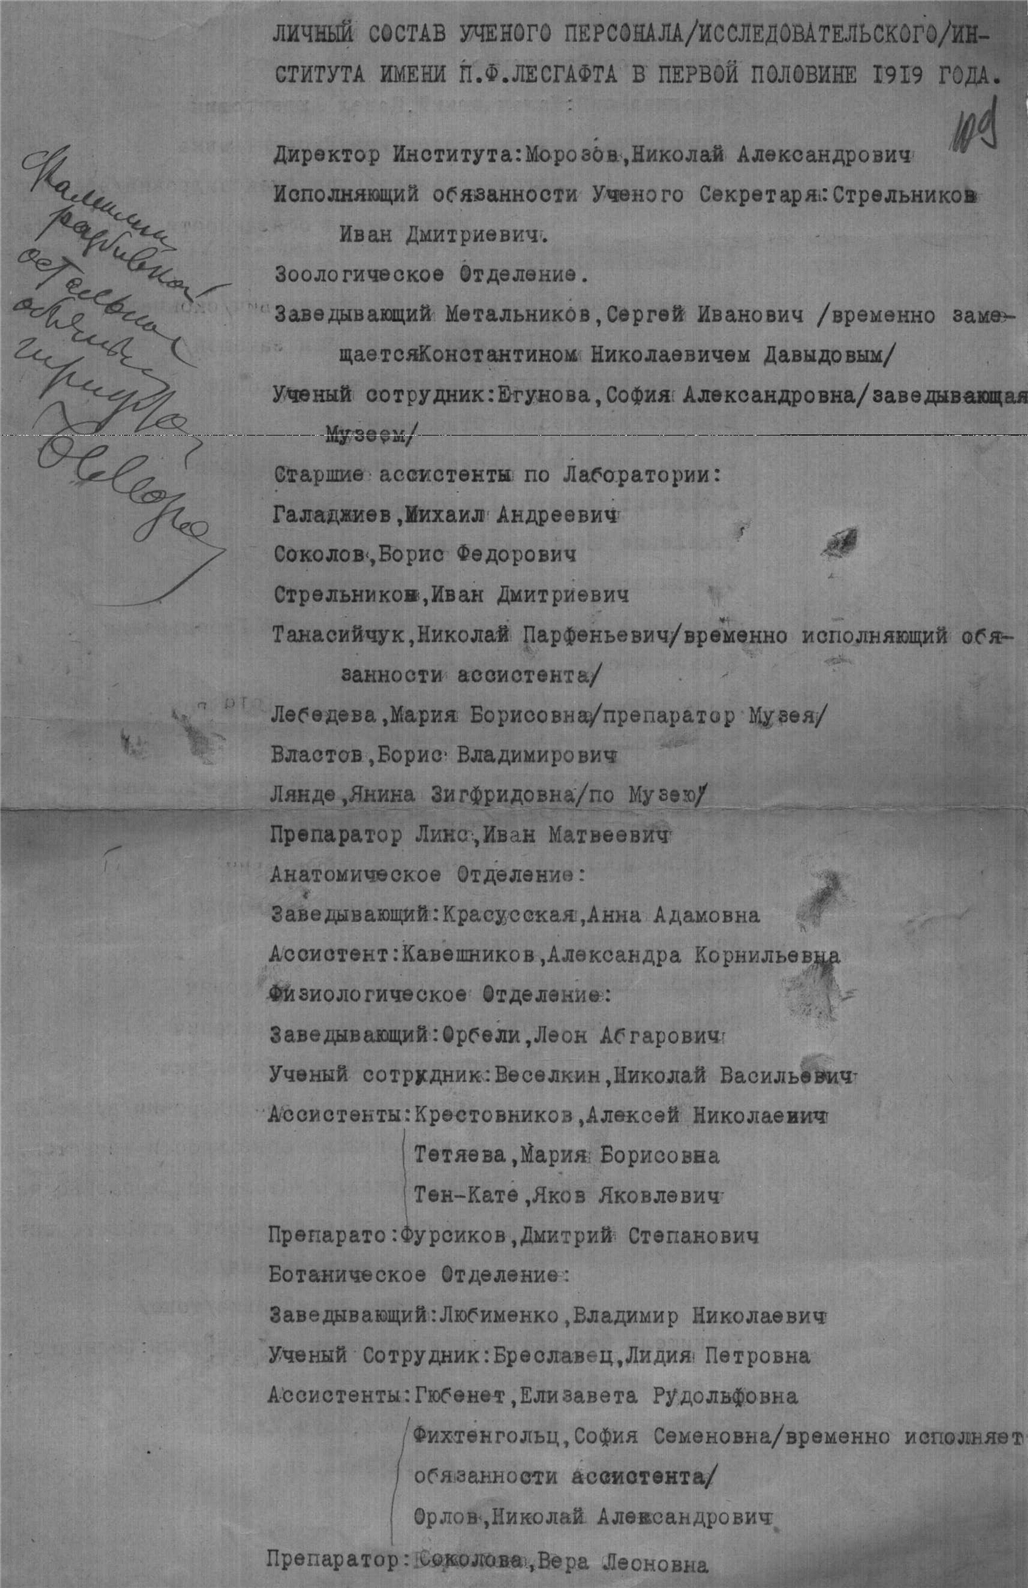 ЛИЧНЫЙ СОСТАВ УЧЕНОГО ПЕРСОНАЛА/ИССЛЕДОВАТЕЛЬСКОГО/ИН-
СТИТУТА ИМЕНИ П.Ф.ЛЕСГАФТА В ПЕРВОЙ ПОЛОВИНЕ 1919 ГОДА.
109
Директор Института:Морозов,Николай Александрович
Исполняющий обязанности Ученого Секретаря:Стрельников
Иван Дмитриевич.
Зоологическое Отделение.
Заведывающий Метальников,Сергей Иванович /временно заме-
щаетсяКонстантином Николаевичем Давыдовым/
Ученый сотрудник:Егунова,София Александровна/заведывающая
Музеем/
Старшие ассистенты по Лаборатории:
Галаджиев,Михаил Андреевич
Соколов,Борис Федорович
Стрельников,Иван Дмитриевич
Танасийчук,Николай Парфеньевич/временно исполняющий обя-
занности ассистента/
Лебедева,Мария Борисовна/препаратор Музея/
Властов,Борис Владимирович
Лянде,Янина Зигфридовна/по Музею/
Препаратор Линс,Иван Матвеевич
Анатомическое Отделение:
Заведывающий:Красусская,Анна Адамовна
Ассистент:Кавешников,Александра Корнильевна
Физиологическое Отделение:
Заведывающий:Орбели,Леон Абгарович
Ученый сотрудник:Веселкин,Николай Васильевич
Ассистенты:Крестовников,Алексей Николаевич
Тетяева,Мария Борисовна
Тен-Кате,Яков Яковлевич
Препарато:Фурсиков,Дмитрий Степанович
Ботаническое Отделение:
Заведывающий:Любименко,Владимир Николаевич
Ученый Сотрудник:Бреславец,Лидия Петровна
Ассистенты:Гюбенет,Елизавета Рудольфовна
Фихтенгольц,София Семеновна/временно исполняет
обязанности ассистента/
Орлов,Николай Александрович
Препаратор:Соколова,Вера Леоновна
Фамилии
разбивкой
остальное
обыкн.
шрифтом